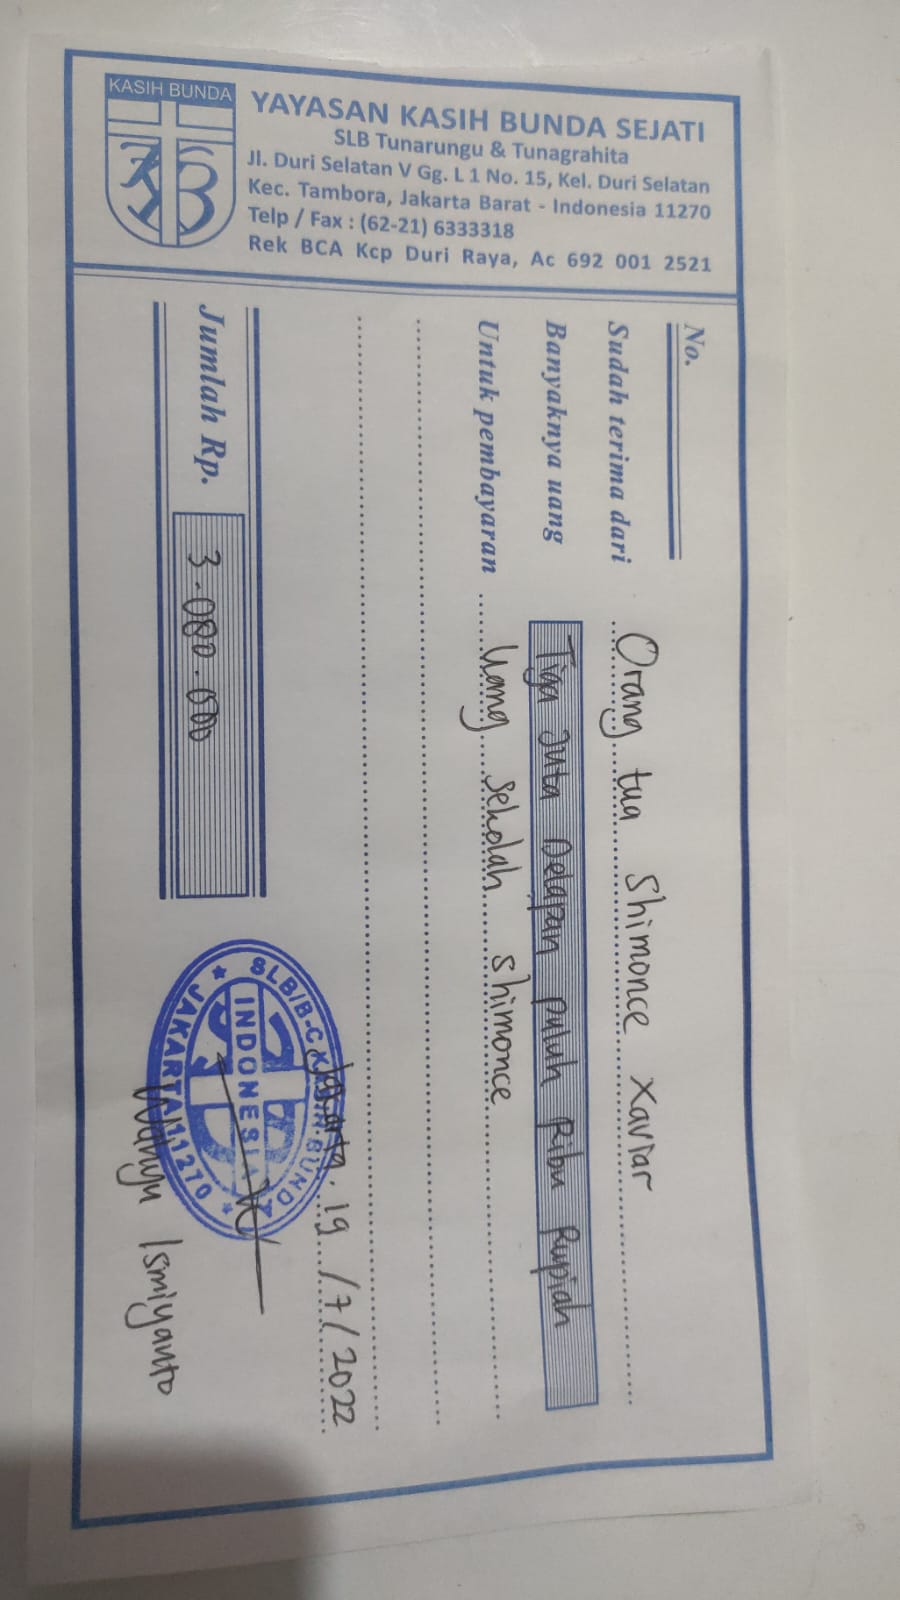 KASIH BUNDA
YAYASAN KASIH BUNDA SEJATI
SLB Tunarungu & Tunagrahita
Jl. Duri Selatan V Gg. L 1 No. 15, Kel. Duri Selatan
Kec. Tambora, Jakarta Barat - Indonesia 11270
Telp / Fax : (62-21) 6333318
Rek BCA Kcp Duri Raya, Ac 692 001 2521
No.
Sudah terima dari Orang tua Shimonce Xaviar
Banyaknya uang Tiga Juta Delapan puluh Ribu Rupiah
Untuk pembayaran Uang sekolah shimonce
Jakarta, 19/7/2022
Jumlah Rp. 3.080.000
SLB/B-C KASIH BUNDA
INDONESIA
JAKARTA 11270
Wahyu Ismiyanto